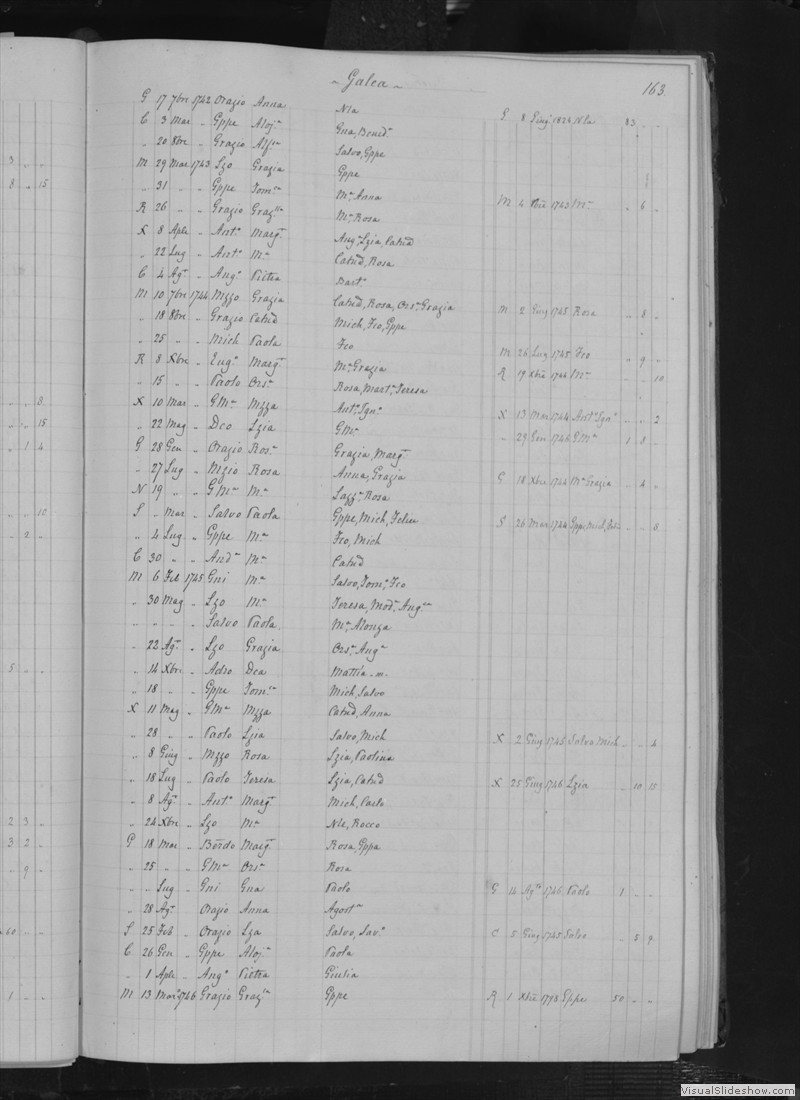 ~ Galea ~
163.
G 17 7bre 1742 Orazio Anna Nla S 8 Giug 1824 Nla 83 " "
C 3 Mar " Gppe Aloja Gna, Bened.a
" 20 8bre " Grazio Salvo, Gppe
3 " "
M 29 Mar 1743 Lzo Grazia Gppe
8 " 15
" 31 " " Gppe Tom.sa M.a Anna M 4 Xbre 1743 M.a " 6 "
R 26 " " Grazio Graz.lla M.a Rosa
X 8 Aple " Ant.o Marg.ta Ang.o Lzia, Catnd
" 22 Lug " Ant.o M.a Catnd, Rosa
C 4 Ag.to " Ang.o Pietra Bart.o
M 10 7bre 1744 Mzzo Grazia Catnd, Rosa, Ors.a Grazia M 2 Giug 1745 Rosa " 8 "
" 18 8bre " Grazio Catnd Mich, Fco, Gppe
" 25 " " Mich Paola Fco M 26 Lug 1745 Fco " 9 "
R 8 Xbre " Eug.o Marg.ta M.a Grazia R 19 Xbre 1744 M.a " " 10
" 15 " " Paolo Ors.a Rosa, Mart.a, Teresa
" " 8
X 10 Mar " GM.a Mzza Ant.o Ign.o X 13 Mar 1744 Ant.o Ign.o " " 2
" " 15
" 22 Mag " Dco Lzia GM.a " 29 Gen 1746 GM.a 1 8 "
" 1 4
G 28 Gen " Orazio Ros.a Grazia, Marg.ta
" 27 Lug " Mzio Rosa Anna, Grazia C 18 Xbre 1744 M.a Grazia " 4 "
N 19 " " GM.a M.a Lazz.o Rosa
" " 10
S " Mar " Salvo Paola Gppe, Mich, Felice S 26 Mar 1744 Gppe, Mich, " " 8
" 2 "
" 4 Lug " Gppe M.a Fco, Mich
C 30 " " And.a M.a Catnd
M 6 Feb 1745 Gni M.a Salvo, Tom.o, Fco
" 30 Mag " Lzo M.a Teresa, Mod.a, Ang.ca
" " " " Salvo Paola M.a Alonza
" 22 Ag.to " Lzo Grazia Ors.a, Ang.a
5 " "
" 14 Xbre " Adeo Dca Mattia-m-
" 18 " " Gppe Tom.sa Mich, Salvo
X 11 Mag " GM.a Mzza Catnd, Anna
" 28 " " Paolo Lzia Salvo, Mich X 2 Giug 1745 Salvo Mich " " 4
" 8 Giug " Mzzo Rosa Lzia, Paolina
" 18 Lug " Paolo Teresa Lzia, Catnd X 25 Giug 1746 Lzia " 10 15
" 8 Ag.to " Ant.o Marg.ta Mich, Carlo
2 3 "
" 24 Xbre " Lzo M.a Nla, Rocco
3 2 "
G 18 Mar " Bordo Marg.ta Rosa, Gppa
" 9 "
" 25 " " GM.a Ors.a Rosa
" " Lug " Gni Gna Paolo G 14 Ag.to 1746 Paolo 1 " "
" 28 Ag.to Orazio Anna Agost.a
60 " "
S 25 Feb " Orazio Lza Salvo, Sav.a C 5 Giug 1745 Salvo " 5 9
C 26 Gen " Gppe Aloj.a Paola
" 1 Aple " Ang.o Pietra Giulia
1 " "
M 13 Mar.o 1746 Grazio Graz.la Gppe R 1 Xbre 1774 Gppe 50 " "
VisualSlideshow.com